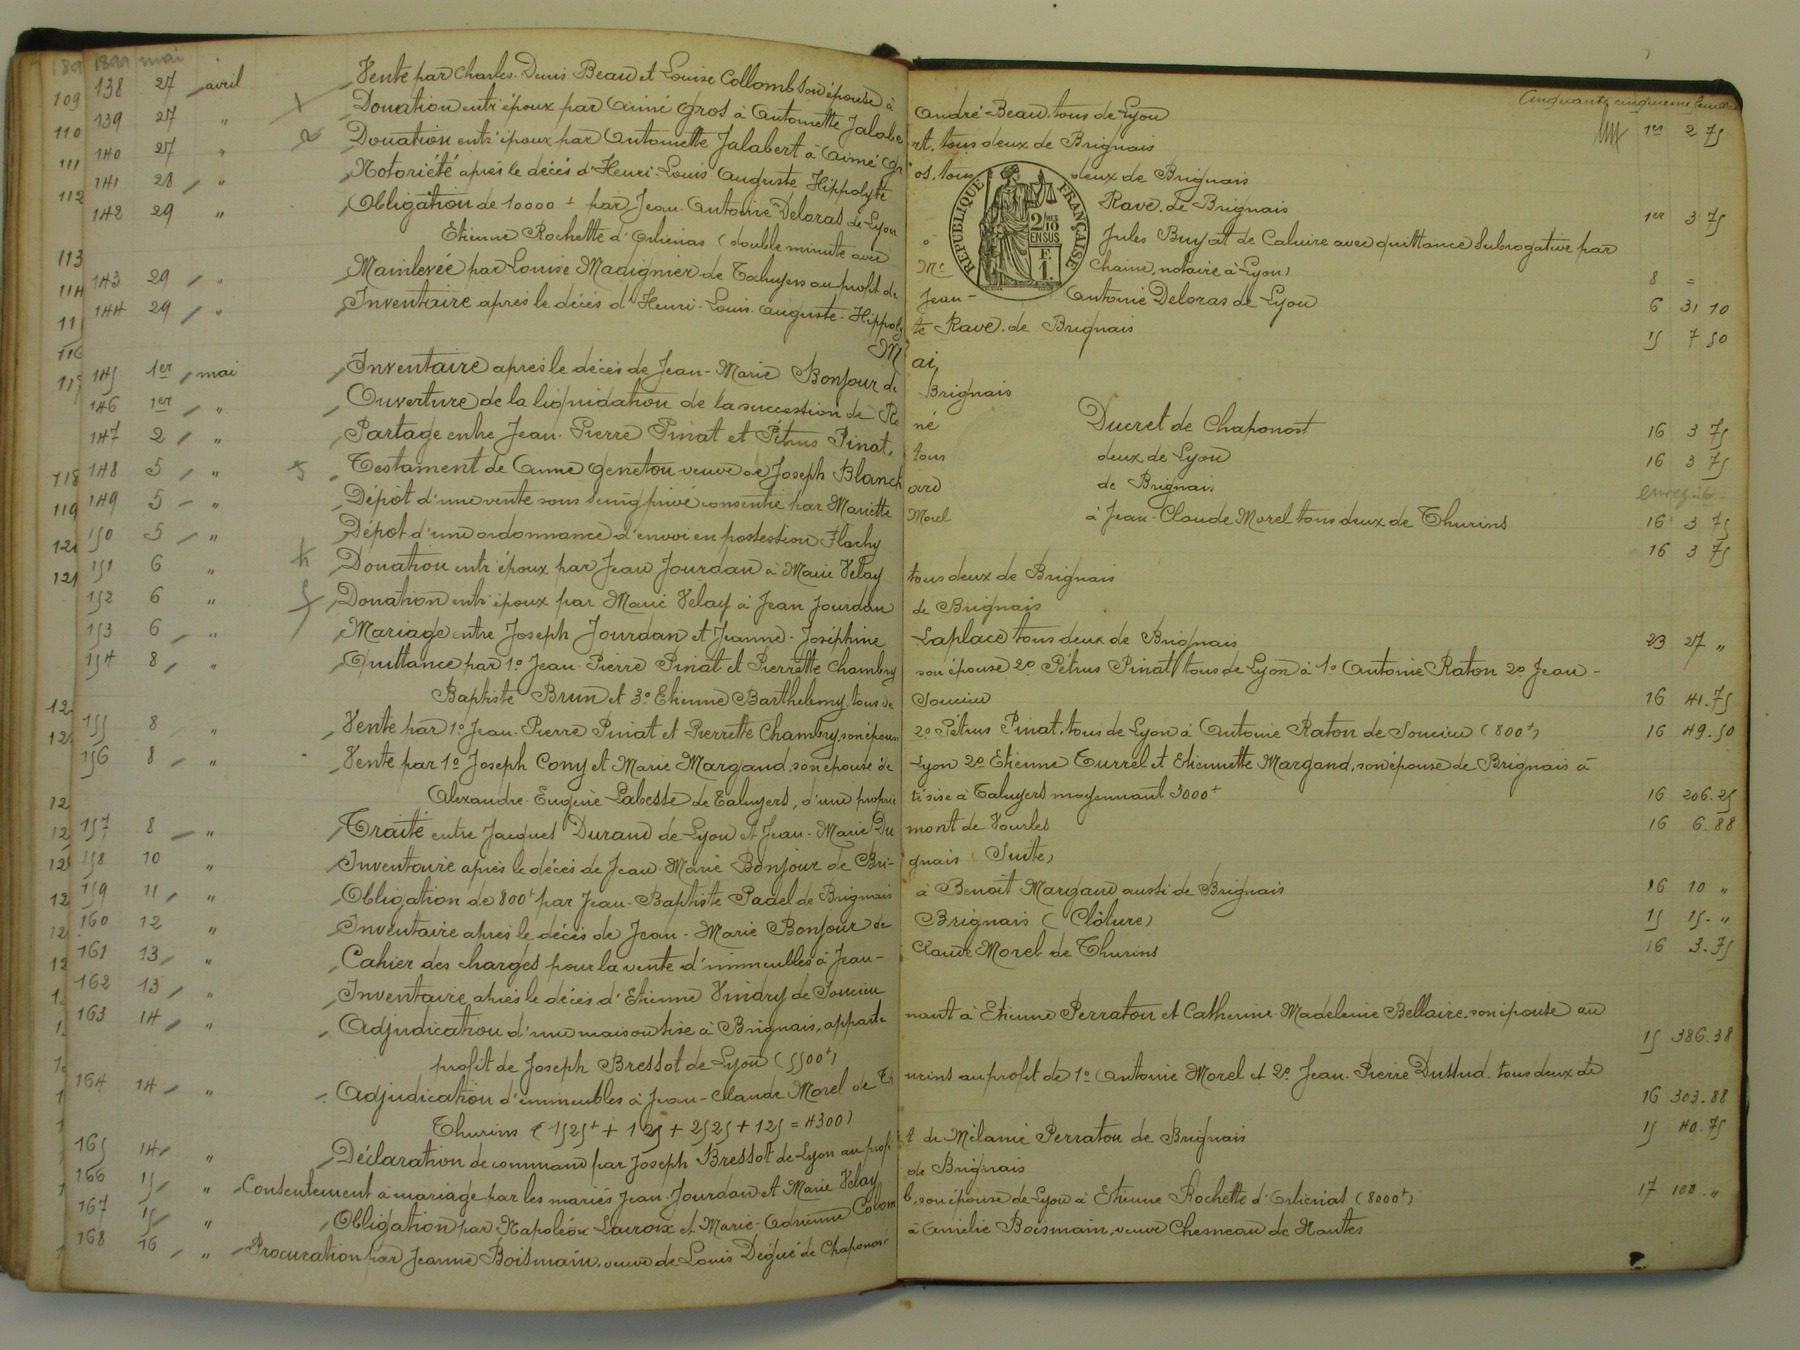 1899 mai
Cinquante cinquième feuillet
138 27 avril Vente par Charles-Denis Beau et Louise Collomb son épouse à André Beau tous de Lyon 1er 2 75
139 27 " Donation entr'époux par Aimé Gros à Antoinette Jalabert, tous deux de Brignais
140 27 " Donation entr'époux par Antoinette Jalabert à Aimé Gros, tous deux de Brignais
141 28 " Notoriété après le décès d'Henri-Louis Auguste Hippolyte Rave, de Brignais 1er 3 75
142 29 " Obligation de 10000 f par Jean-Antoine Deloras de Lyon à Jules Buyat de Caluire avec quittance subrogative par
Etienne Rochette d'Orlienas (double minute avec Me Chaine, notaire à Lyon) 8 =
143 29 " Mainlevée par Louise Madignier de Taluyers au profit de Jean-Antoine Deloras de Lyon 6 31 10
144 29 " Inventaire après le décès d'Henri-Louis-Auguste-Hippolyte Rave, de Brignais 15 7 50
RÉPUBLIQUE FRANÇAISE
2/10 EN SUS
F. 1.
Mai
145 1er mai Inventaire après le décès de Jean-Marie Bonjour de Brignais
146 1er " Ouverture de la liquidation de la succession de René Ducret de Chaponost 16 3 75
147 2 " Partage entre Jean-Pierre Pinat et Pétrus Pinat, tous deux de Lyon 16 3 75
148 5 " Testament de Anne Geneton veuve de Joseph Blanchard de Brignais
149 5 " Dépôt d'une vente sous seing privé consentie par Mariette Morel à Jean-Claude Morel tous deux de Thurins 16 3 75
150 5 " Dépôt d'une ordonnance d'envoi en possession Flachy 16 3 75
151 6 " Donation entr'époux par Jean Jourdan à Marie Velay tous deux de Brignais
152 6 " Donation entr'époux par Marie Velay à Jean Jourdan de Brignais
153 6 " Mariage entre Joseph Jourdan et Jeanne-Joséphine Laplace tous deux de Brignais 23 27 "
154 8 " Quittance par 1º Jean-Pierre Pinat et Pierrette Chambry son épouse 2º Pétrus Pinat tous de Lyon à 1º Antoine Raton 2º Jean-
Baptiste Brun et 3º Etienne Barthelemy, tous de Soucieu 16 41.75
155 8 " Vente par 1º Jean-Pierre Pinat et Pierrette Chambry, son épouse 2º Pétrus Pinat, tous de Lyon à Antoine Raton de Soucieu (800 f) 16 49.50
156 8 " Vente par 1º Joseph Cony et Marie Margand, son épouse de Lyon 2º Etienne Turrel et Etiennette Margand, son épouse de Brignais à
Alexandre-Eugène Labesse de Taluyers, d'une propriété sise à Taluyers moyennant 3000 f 16 206.25
157 8 " Traité entre Jacques Durand de Lyon et Jean-Marie Dumont de Vourles 16 6.88
158 10 " Inventaire après le décès de Jean Marie Bonjour de Brignais (Suite)
159 11 " Obligation de 800 f par Jean-Baptiste Padel de Brignais à Benoit Margand aussi de Brignais 16 10 "
160 12 " Inventaire après le décès de Jean-Marie Bonjour de Brignais (Clôture) 15 15. "
161 13 " Cahier des charges pour la vente d'immeubles à Jean-Claude Morel de Thurins 16 3.75
162 13 " Inventaire après le décès d'Etienne Vindry de Soucieu
163 14 " Adjudication d'une maison sise à Brignais, appartenant à Etienne Perraton et Catherine-Madeleine Bellaire, son épouse au
profit de Joseph Bressot de Lyon (5500 f) 15 386.38
164 14 " Adjudication d'immeubles à Jean-Claude Morel de Thurins au profit de 1º Antoine Morel et 2º Jean-Pierre Dussud, tous deux de
Thurins (1525 f + 125 + 2525 + 125 = 4300) 16 303.88
165 14 " Déclaration de command par Joseph Bressot de Lyon au profit de Mélanie Perraton de Brignais 15 40.75
166 15 " Consentement à mariage par les mariés Jean Jourdan et Marie Velay de Brignais
167 15 " Obligation par Napoléon Lacroix et Marie-Adrienne Colomb, son épouse de Lyon à Etienne Rochette d'Orliénas (8000 f) 17 100. "
168 16 " Procuration par Jeanne Boismain, veuve de Louis Dégué de Chaponost à Amélie Boismain, veuve Chesneau de Nantes